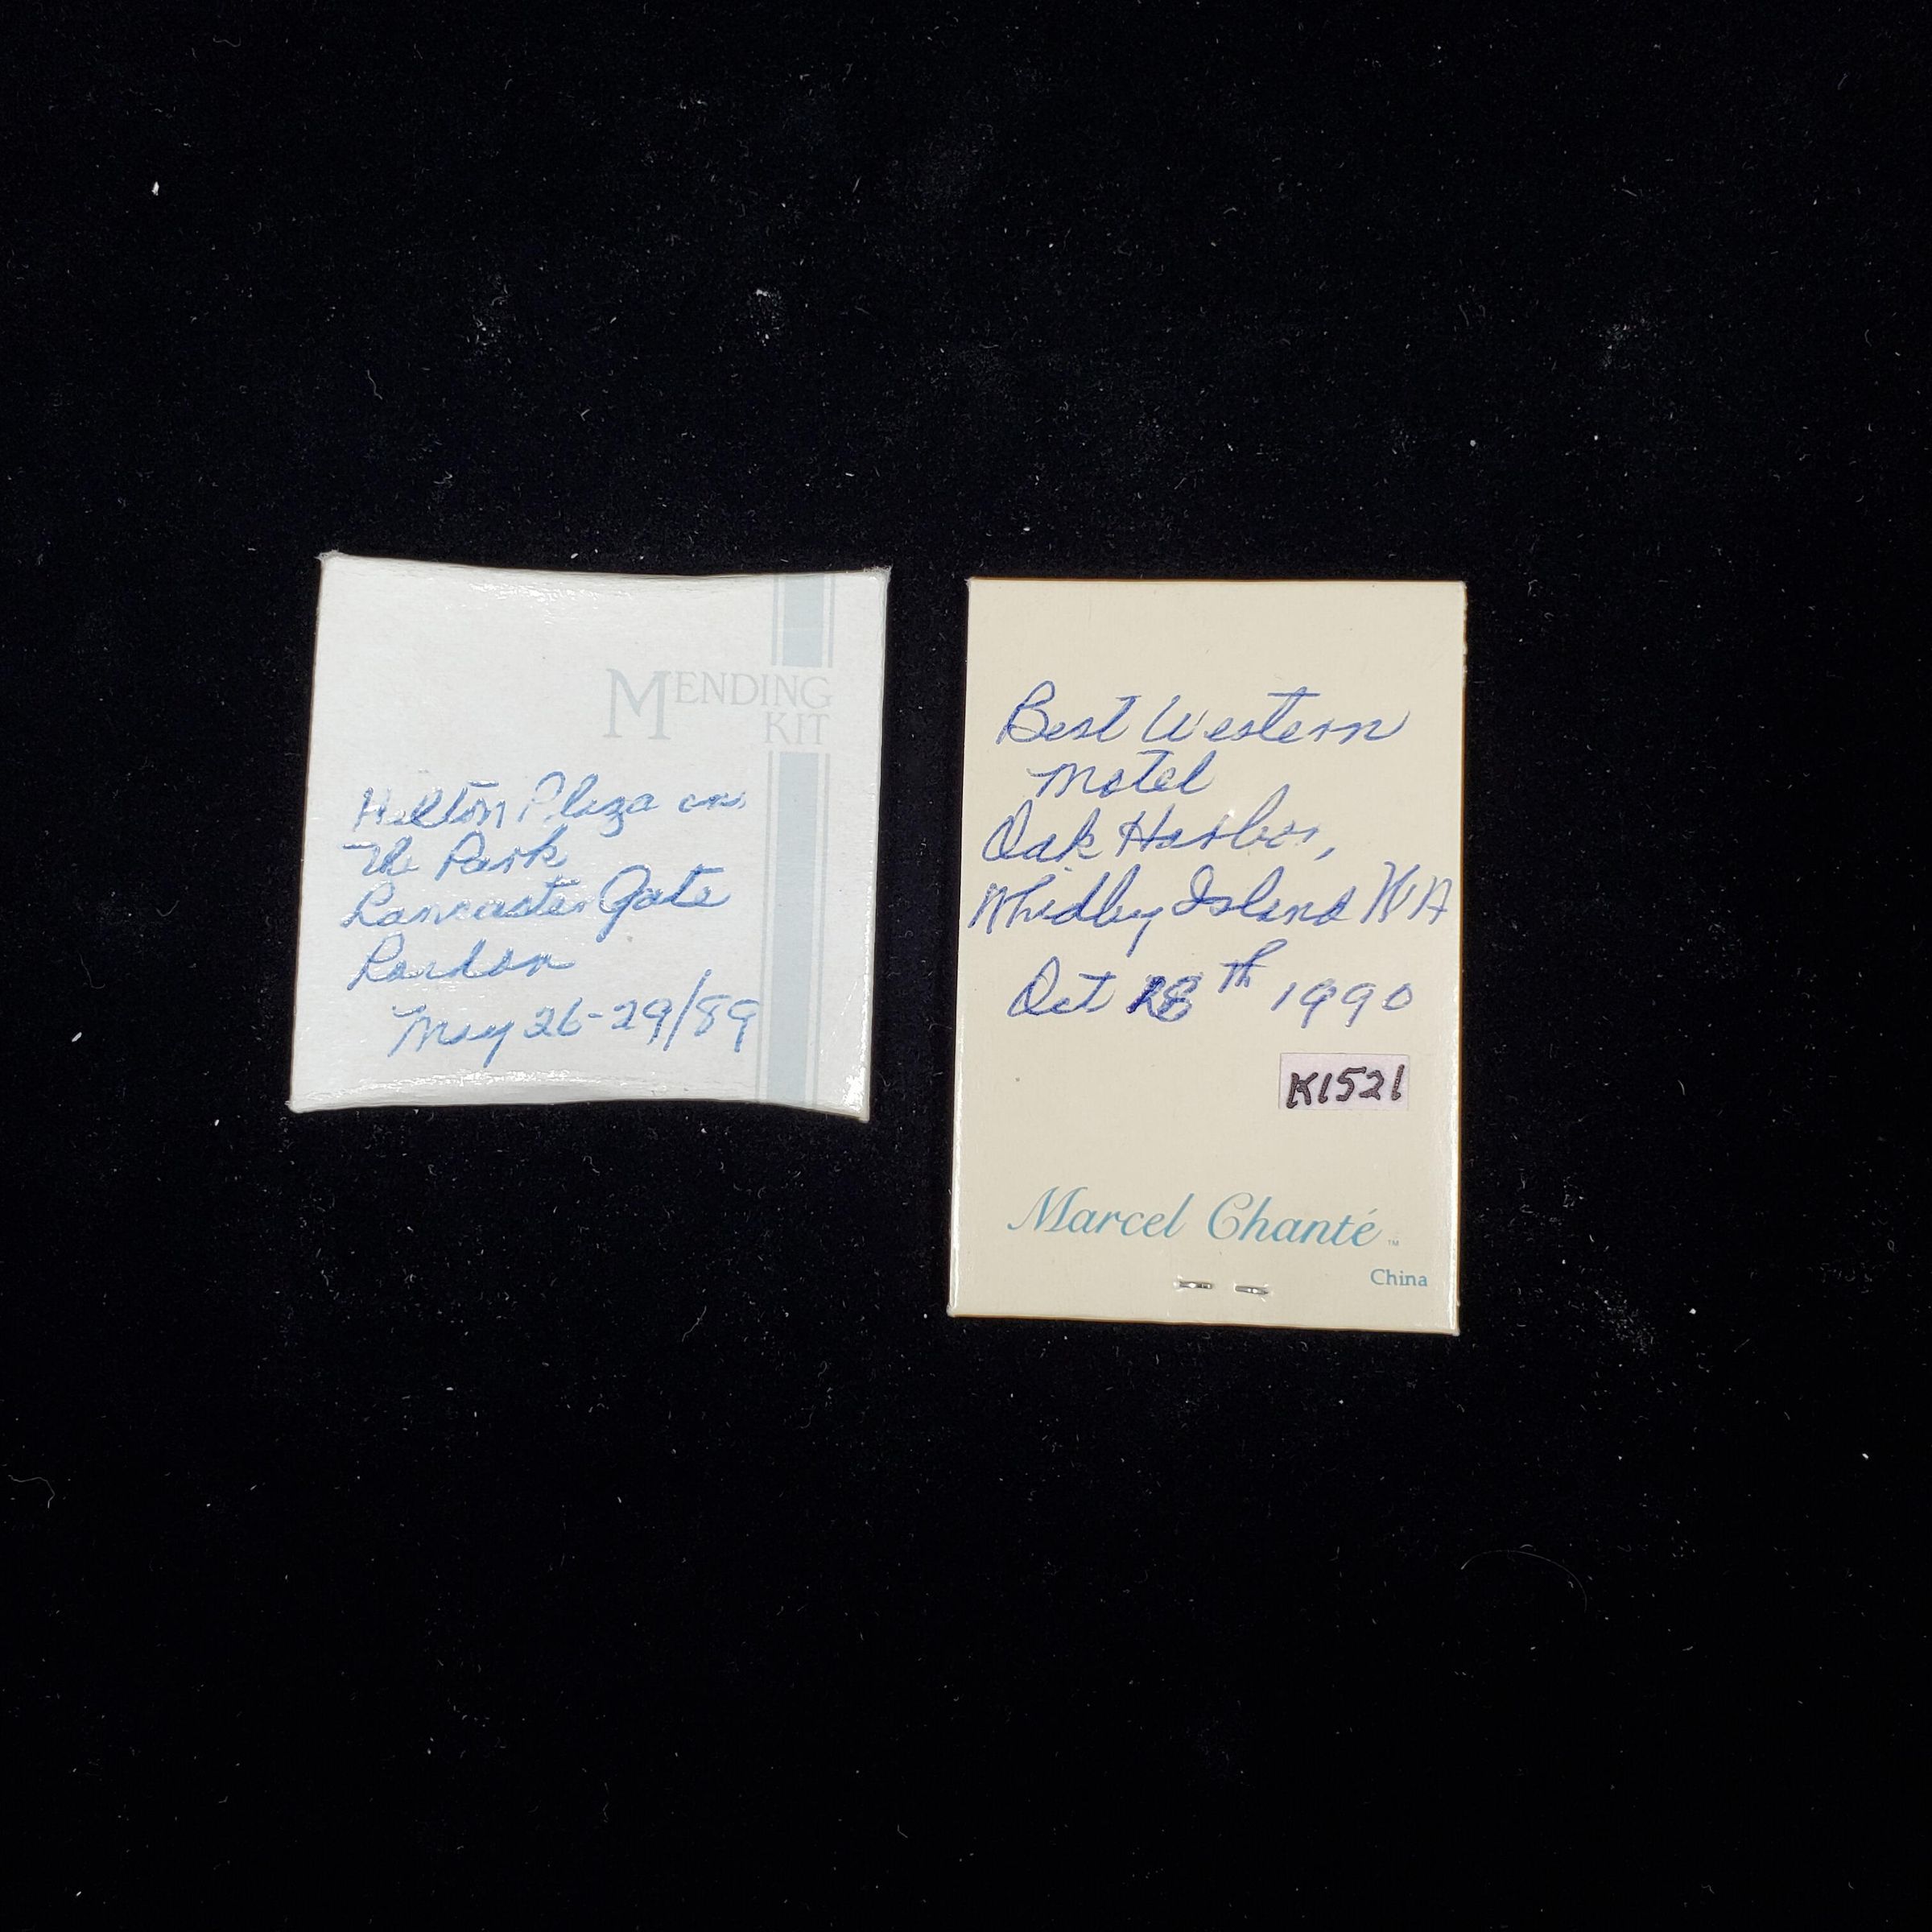 MENDING
KIT
Hilton Plaza on
The Park
Lancaster Gate
London
May 26-29/89
Best Western
Motel
Oak Harbor,
Whidby Island WA
Oct 28th 1990
K1521
Marcel Chanté™
China